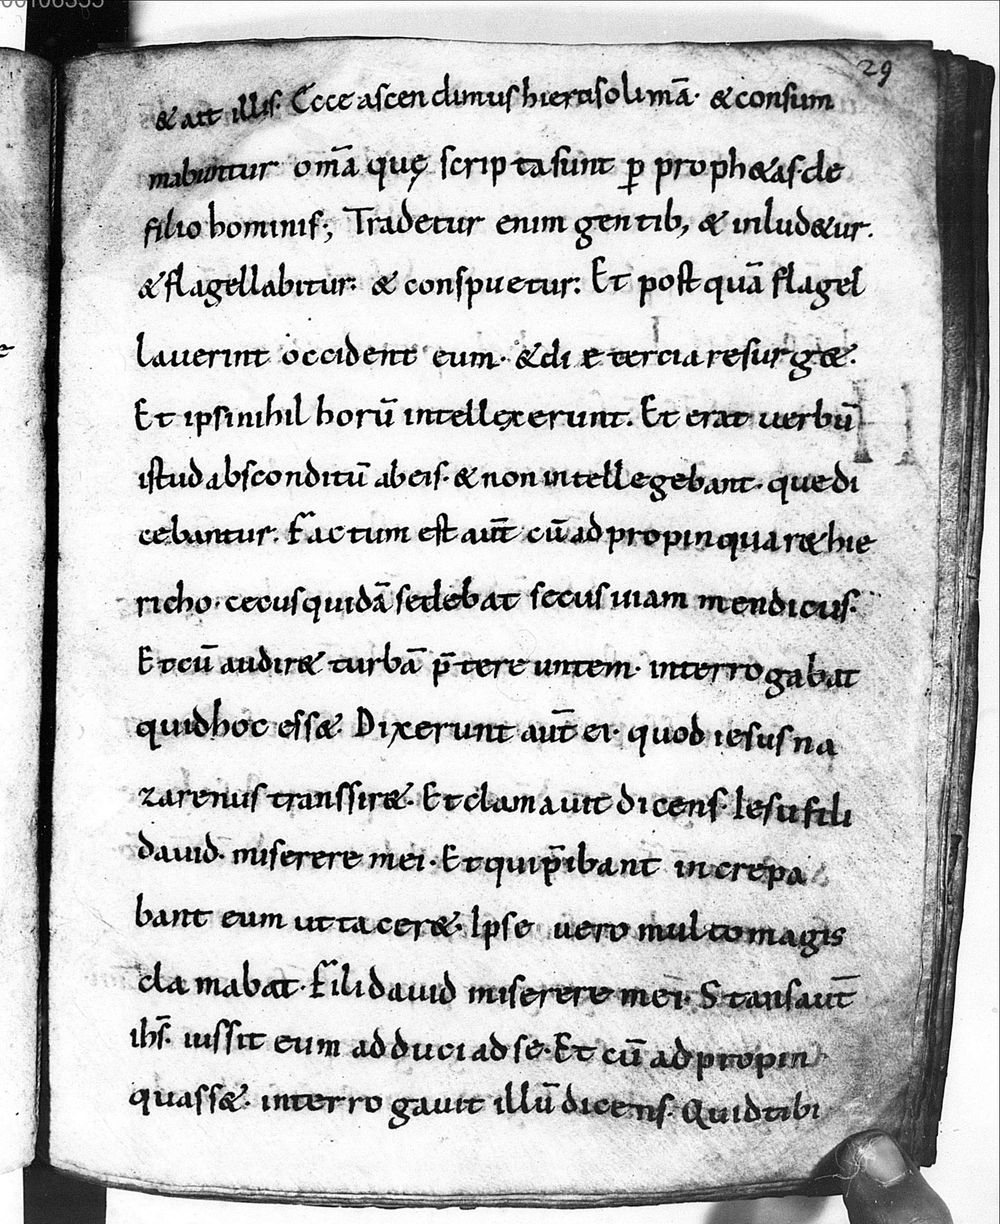 00106355
29
& ait illis. Ecce ascendimus hierusolimā. & consum
mabuntur om̄a quę scripta sunt ꝑ proph&as de
filio hominis; Tradetur enim gentib, & inlud&ur.
& flagellabitur. & conspuetur. Et post quā flagel
laverint occident eum. & di e tercia resurg&.
Et ipsi nihil horū intellexerunt. Et erat verbū
istud absconditū ab eis. & non intellegebant. que di
cebantur. Factum est aut̄ cū ad propinquar& hie
richo. cecus quidā sedebat secus viam mendicus.
Et cū audir& turbā p̄tereuntem. interrogabat
quid hoc ess&. Dixerunt aut̄ ei. quod iesus na
zarenus transsir&. Et clamavit dicens. Iesu fili
david. miserere mei. Et qui p̄ibant increpa
bant eum ut tacer&. Ipse vero multo magis
clamabat. Fili david miserere mei. Stans aut̄
ihs̄. iussit eum adduci ad se. Et cū adpropin
quass&. interrogavit illū dicens. Quid tibi